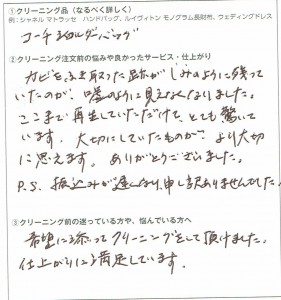 ①クリーニング品（なるべく詳しく）
例：シャネル マトラッセ　ハンドバッグ、ルイヴィトン モノグラム長財布、ウェディングドレス
コーチ ショルダーバッグ
②クリーニング注文前の悩みや良かったサービス・仕上がり
カビをふき取った跡がしみのように残って
いたのが、嘘のように見えなくなりました。
ここまで再生していただけて、とても驚いて
います。大切にしていたものが、より大切
に思えます。ありがとうございました。
P.S. 振込みが遅くなり、申し訳ありませんでした。
③クリーニング前の迷っている方や、悩んでいる方へ
希望に添ってクリーニングをして頂けました。
仕上がりに満足しています。